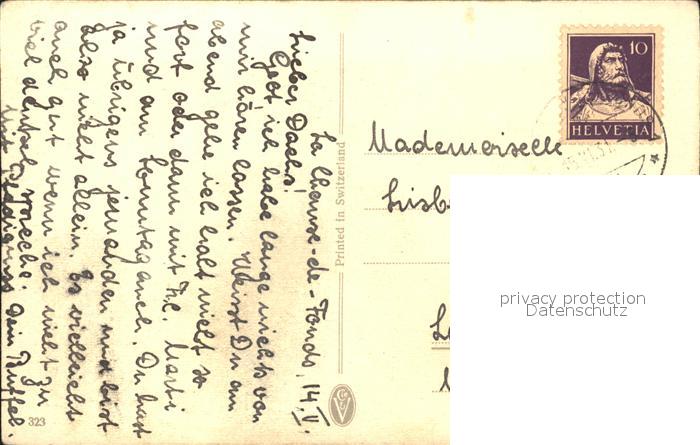 La Chaux-de-Fonds, 14.V.
Lieber Dachs!
Gell ich habe lange nichts von
mir hören lassen. Weisst Du am
abend gehe ich halt nicht so
fort oder dann mit Frl. Marti
und am Sonntag auch. Du hast
ja übrigens jemanden und bist
also nicht allein. Es vielleicht
auch gut wenn ich nicht zu
viel deutsch spreche.
Mit Dein
Printed in Switzerland
323
Mademoiselle
10
HELVETIA
privacy protection
Datenschutz